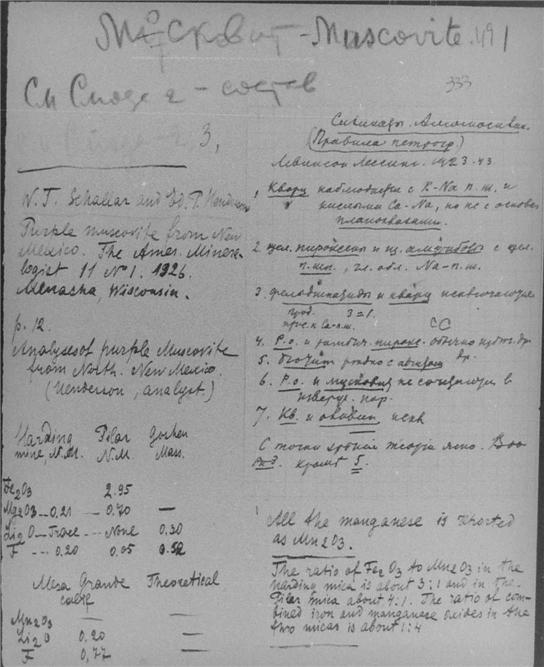 Мусковит - Muscovite. 491
См Слюде 2 - состав
333
3,
W. T. Schallar and Ed. P. Henderson
Purple muscovite from New
Mexico. The Amer. Minera-
logist 11 № 1. 1926.
Menasha, Wisconsin.
p. 12.
Analyses of purple Muscovite
from North. New Mexico.
(Henderson, analyst.)
Harding Pilar Goshen
mine, N.M. N.M. Mass.
Fe2O3 2.95
Mn2O3 -- 0.21 - 0.70 —
Li2O - Trace - None 0.30
F --- 0.20 0.05 0.52
Mesa Grande Theoretical
Calif
Mn2O3 — —
Li2O 0,20 —
F 0,77 —
Силикаты. Алюмосилик.
(Правила петрогр.)
Левинсон Лессинг. 1923. 43
1, Кварц наблюдается с K-Na п.ш. и
кислыми Ca-Na, но не с основн.
плагиоклазами.
2. щел. пироксены и щ. амфиболы с щел.
п.шп., гл. обр. Na-п.ш.
3. фельдшпатиды и кварц исключающие
4. Р.о. и пирокс. обычно
5. биотит редко с авгитом
6. Р.о. и мусковит не сочетаются в
изверж. пор.
7. Кв. и оливин искл
С точки зрения теории ясно. Все
кроме 5.
All the manganese is reported
as Mn2O3.
The ratio of Fe2O3 to Mn2O3 in the
Harding mica is about 3:1 and in the
Pilar mica about 4:1. The ratio of com-
bined iron and manganese oxides in the
two micas is about 1:4